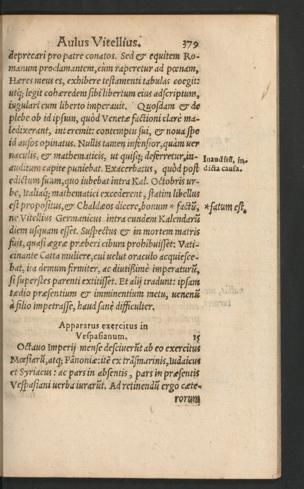 Aulus Vitellius. 379
deprecari pro patre conatos. Sed & equitem Ro-
manum proclamantem, cùm raperetur ad pœnam,
Hæres meus es, exhibere testamenti tabulas coegit:
utq; legit cohæredem sibi libertum eius adscriptum,
iugulari cum liberto imperauit. Quosdam & de
plebe ob id ipsum, quòd Venetæ factioni clarè ma-
ledixerant, interemit: contemptu sui, & noua spe
id ausos opinatus. Nullis tamen infensior, quàm uer
naculis, & mathematicis, ut quisq; deferretur, in-
auditum capite puniebat. Exacerbatus, quòd post
edictum suum, quo iubebat intra Kal. Octobris ur-
be, Italiaq; mathematici excederent, statim libellus
est propositus, & Chaldæos dicere, bonum * factũ,
ne Vitellius Germanicus intra eundem Kalendarũ
diem usquam esset. Suspectus & in morte matris
fuit, quasi ægræ præberi cibum prohibuisset: Vati-
cinante Catta muliere, cui uelut oraculo acquiesce-
bat, ita demum firmiter, ac diutissimè imperaturũ,
si superstes parenti extitisset. Et alij tradunt: ipsam
tædio præsentium & imminentium metu, uenenũ
à filio impetrasse, haud sanè difficulter.
Inauditũ, in-
dicta causa.
*fatum est,
Apparatus exercitus in
Vespasianum. 15
Octauo Imperij mense desciuerũt ab eo exercitus
Mœsiarũ, atq; Pãnoniæ: itẽ ex trãsmarinis, Iudaicus
et Syriacus: ac pars in absentis, pars in præsentis
Vespasiani uerba iurarũt. Ad retinendũ ergo cæte-
rorum